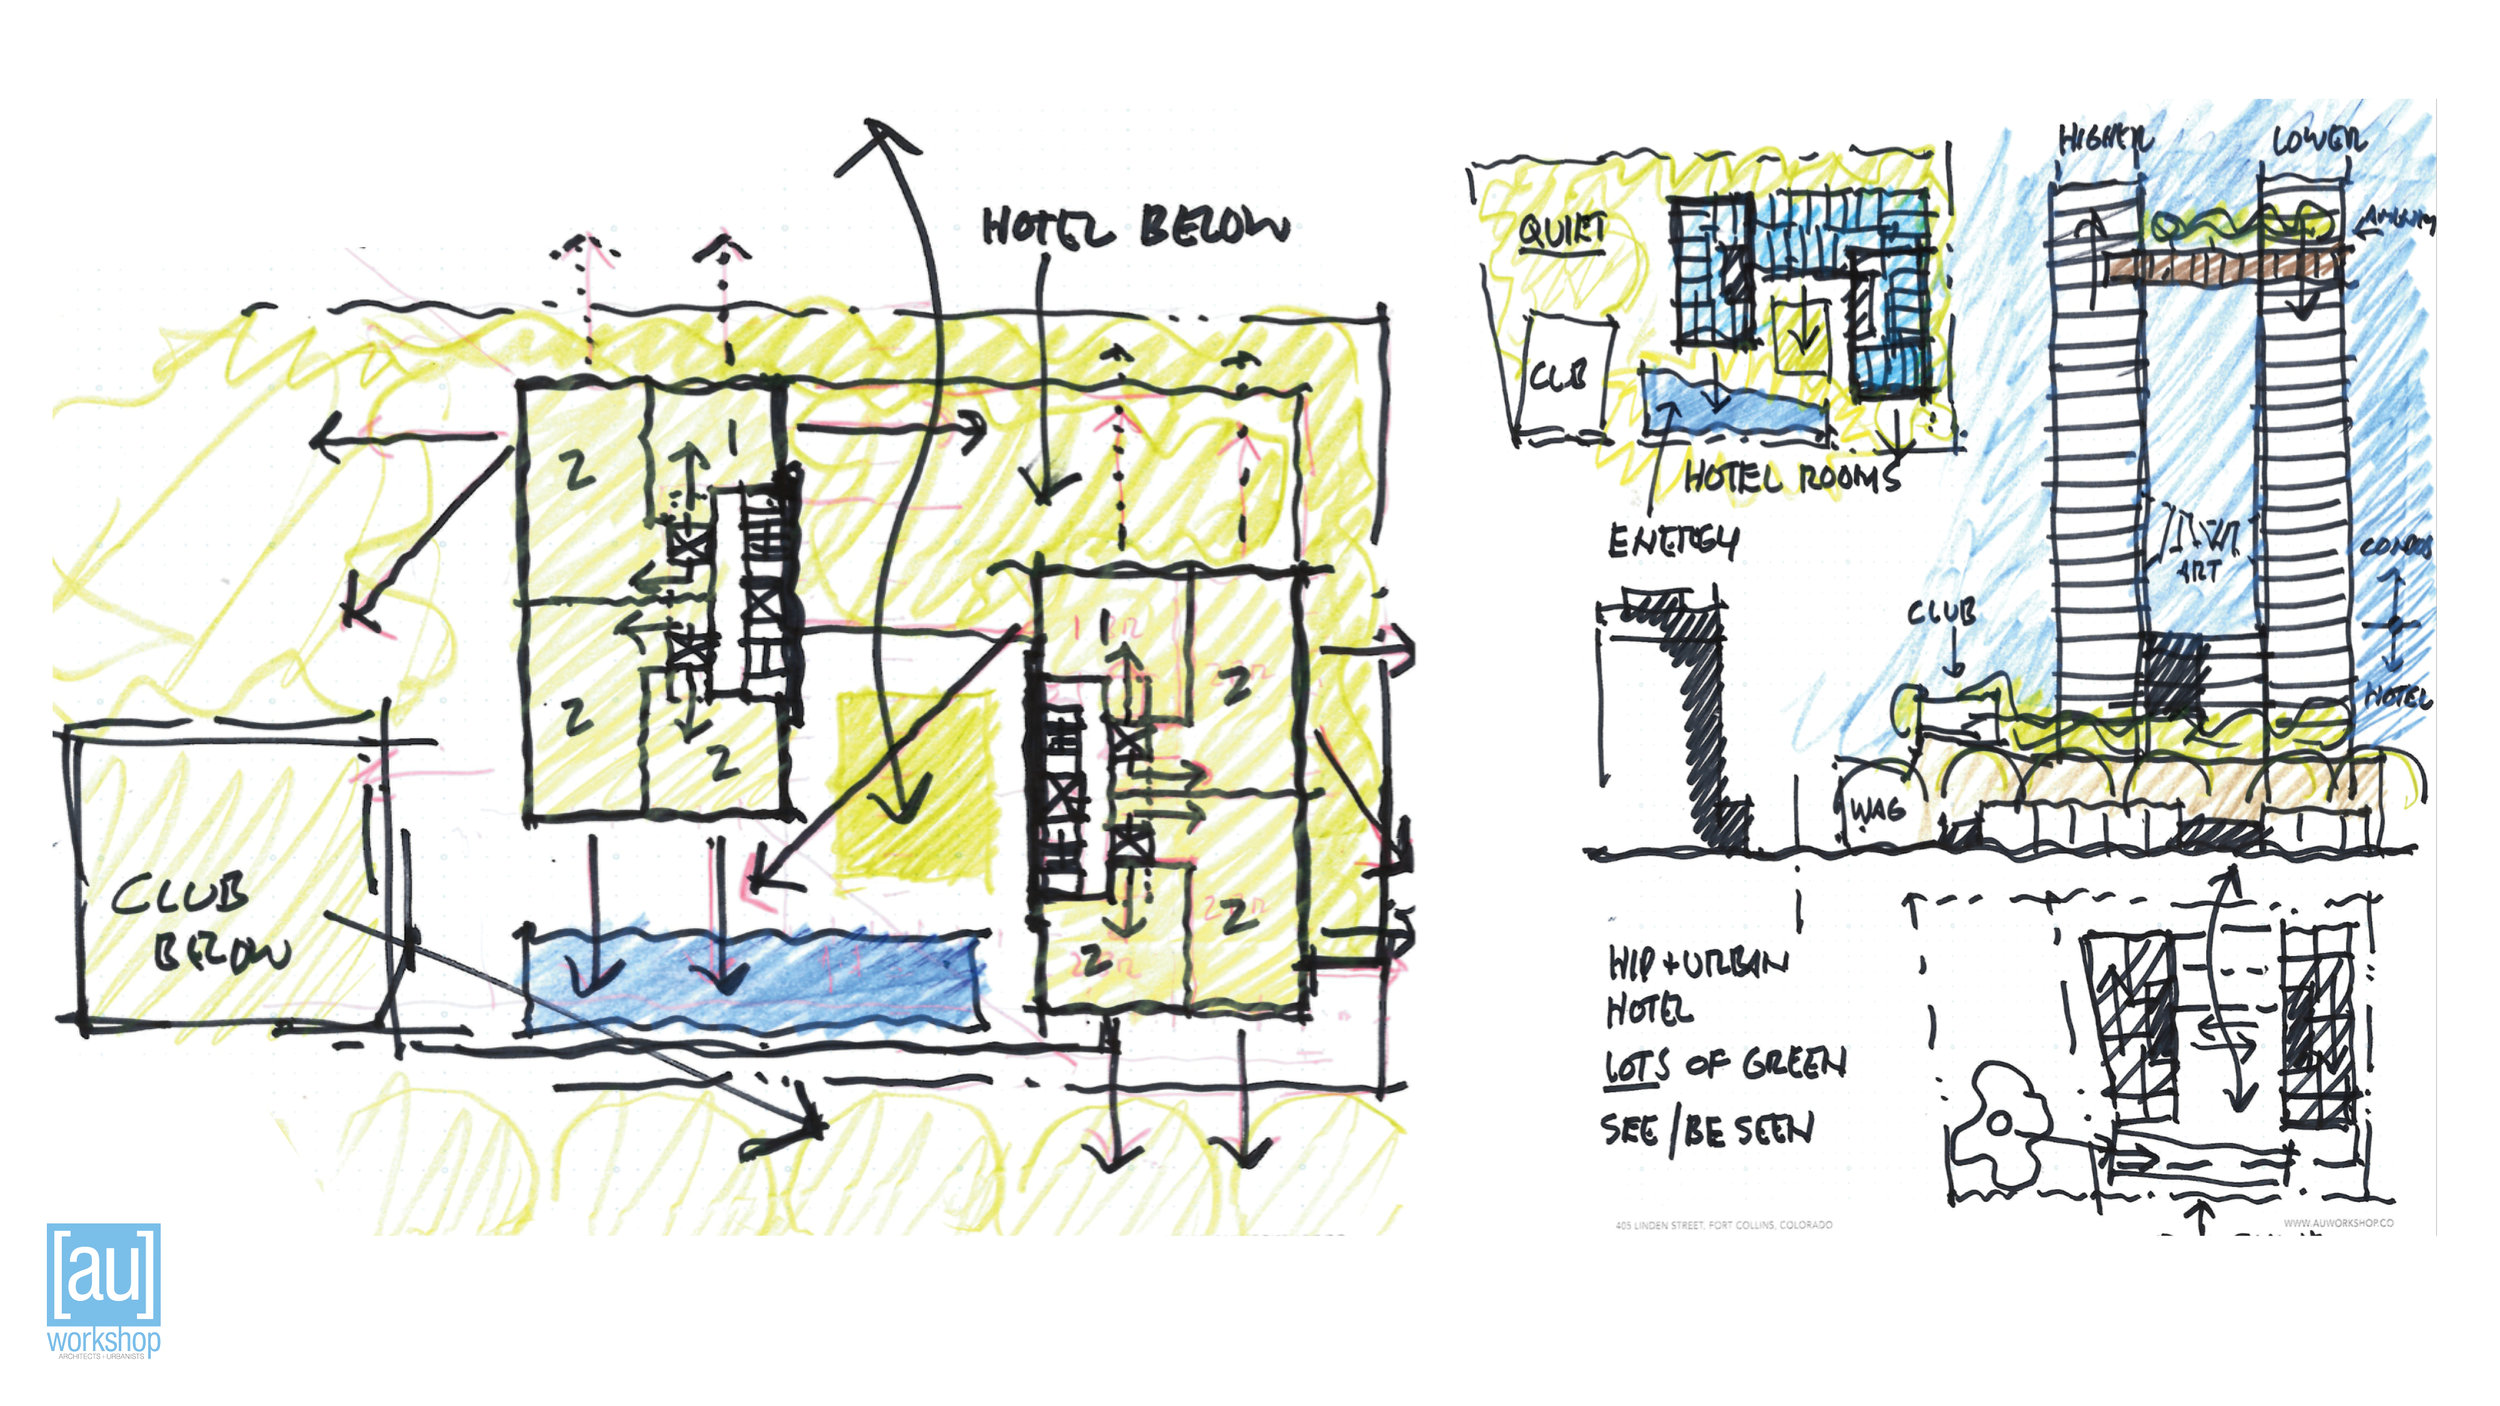 HOTEL BELOW
2
1
2
2
1
2
2
2
CLUB
BELOW
QUIET
CLUB
HOTEL ROOMS
ENERGY
HIGHER
LOWER
AMENITY
ART
CONDOS
HOTEL
CLUB
WAG
HIP + URBAN
HOTEL
LOTS OF GREEN
SEE / BE SEEN
405 LINDEN STREET, FORT COLLINS, COLORADO
WWW.AUWORKSHOP.CO
[au]
workshop
ARCHITECTS + URBANISTS